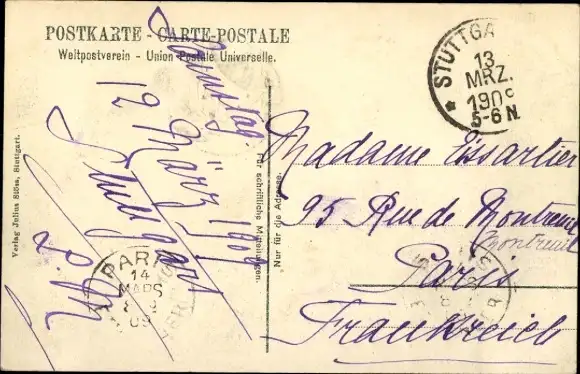 POSTKARTE - CARTE-POSTALE
Weltpostverein - Union Postale Universelle.
Samstag
12 März 1909
Stuttgart
Verlag Julius Stöss, Stuttgart.
Für schriftliche Mitteilungen.
Nur für die Adresse.
STUTTGA
13
MRZ.
190
5-6 N.
Madame
95 Rue de Montreuil
Montreuil
Paris
Frankreich
PARI
14
MARS
09